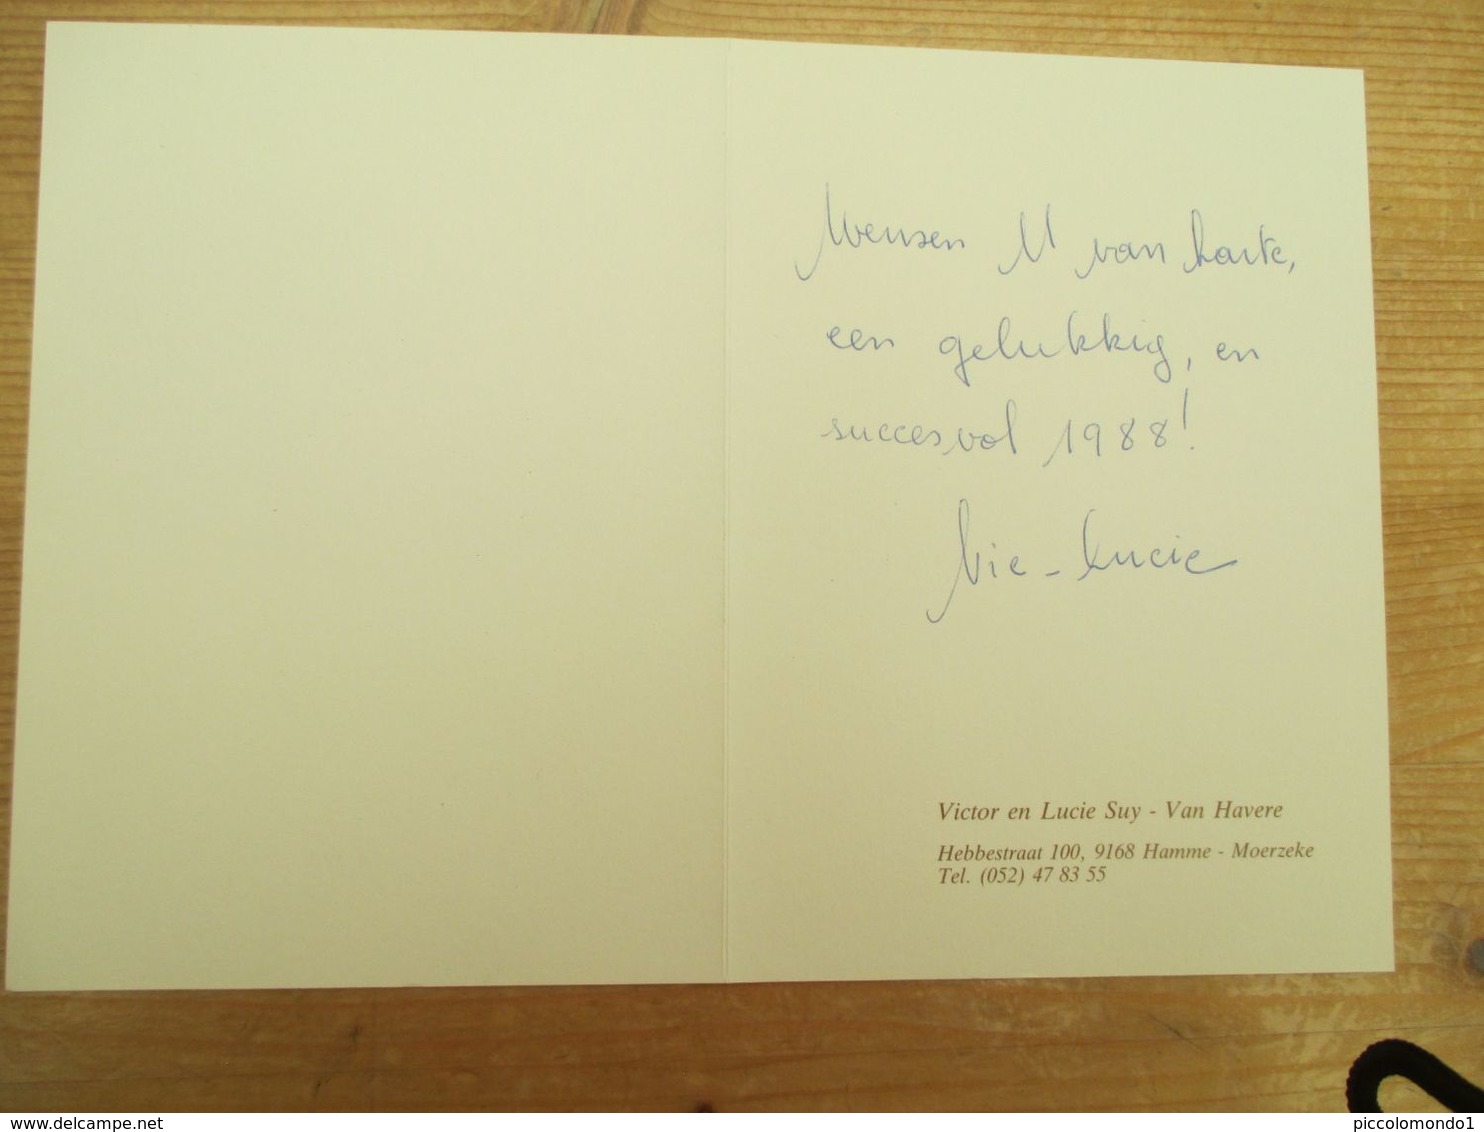 Wensen U van harte,
een gelukkig, en
succesvol 1988!
Vic - Lucie
Victor en Lucie Suy - Van Havere
Hebbestraat 100, 9168 Hamme - Moerzeke
Tel. (052) 47 83 55
www.delcampe.net
piccolomondo1